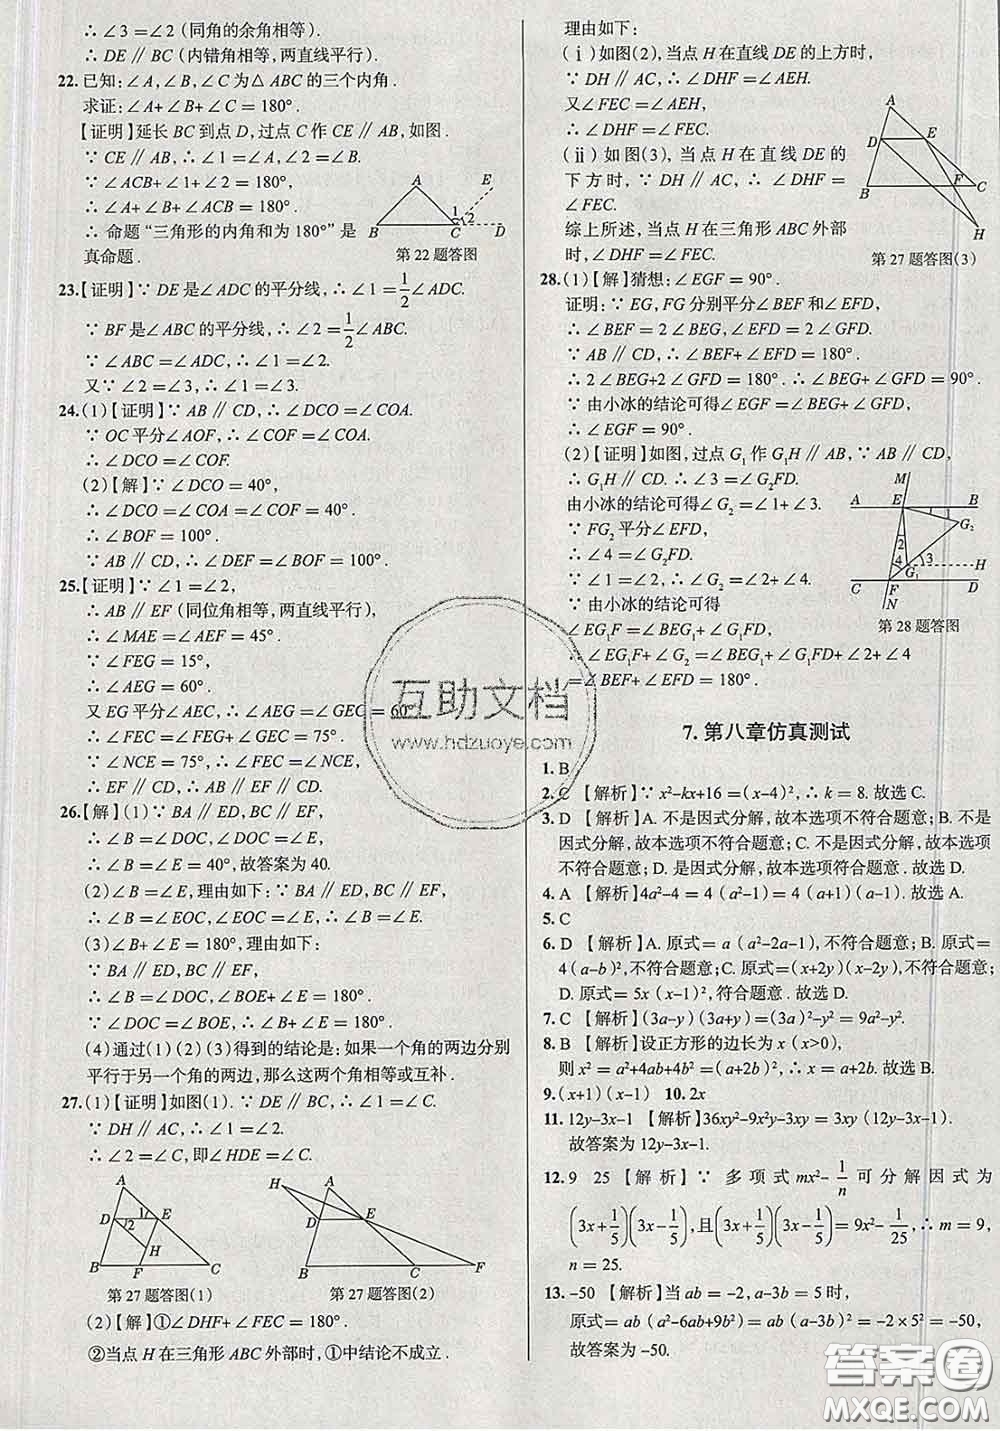 ∴ ∠3 = ∠2 (同角的余角相等).
∴ DE ∥ BC (内错角相等,两直线平行).
22. 已知: ∠A, ∠B, ∠C 为△ ABC 的三个内角.
求证: ∠A+ ∠B+ ∠C = 180°.
【证明】延长 BC 到点 D, 过点 C 作 CE ∥ AB, 如图.
∵ CE ∥ AB, ∴ ∠1 = ∠A, ∠2 = ∠B.
∵ ∠ACB+ ∠1+ ∠2 = 180°,
∴ ∠A+ ∠B+ ∠ACB = 180°,
∴ 命题 “三角形的内角和为 180°” 是
真命题.
A E 1 2 B C D
第 22 题答图
23.【证明】∵ DE 是∠ADC 的平分线, ∴ ∠1 = 1/2 ∠ADC.
∵ BF 是∠ABC 的平分线, ∴ ∠2 = 1/2 ∠ABC.
∵ ∠ABC = ∠ADC, ∴ ∠1 = ∠2.
又∵ ∠2 = ∠3, ∴ ∠1 = ∠3.
24. (1)【证明】∵ AB ∥ CD, ∴ ∠DCO = ∠COA.
∵ OC 平分∠AOF, ∴ ∠COF = ∠COA.
∴ ∠DCO = ∠COF.
(2)【解】∵ ∠DCO = 40°,
∴ ∠DCO = ∠COA = ∠COF = 40°.
∴ ∠BOF = 100°.
∵ AB ∥ CD, ∴ ∠DEF = ∠BOF = 100°.
25.【证明】∵ ∠1 = ∠2,
∴ AB ∥ EF (同位角相等,两直线平行),
∴ ∠MAE = ∠AEF = 45°.
∵ ∠FEG = 15°,
∴ ∠AEG = 60°.
又 EG 平分∠AEC, ∴ ∠AEG = ∠GEC = 60°,
∴ ∠FEC = ∠FEG+ ∠GEC = 75°.
∵ ∠NCE = 75°, ∴ ∠FEC = ∠NCE,
∴ EF ∥ CD, ∴ AB ∥ EF ∥ CD.
26.【解】(1) ∵ BA ∥ ED, BC ∥ EF,
∴ ∠B = ∠DOC, ∠E = ∠DOC,
∴ ∠B = ∠E = 40°, 故答案为 40.
(2) ∠B = ∠E, 理由如下: ∵ BA ∥ ED, BC ∥ EF,
∴ ∠B = ∠EOC, ∠E = ∠EOC, ∴ ∠B = ∠E.
(3) ∠B+ ∠E = 180°, 理由如下:
∵ BA ∥ ED, BC ∥ EF,
∴ ∠B = ∠DOC, ∠BOE+ ∠E = 180°.
∵ ∠DOC = ∠BOE, ∴ ∠B+ ∠E = 180°.
(4) 通过 (1) (2) (3) 得到的结论是: 如果一个角的两边分别
平行于另一个角的两边, 那么这两个角相等或互补.
27. (1)【证明】如图(1). ∵ DE ∥ BC, ∴ ∠1 = ∠C.
∵ DH ∥ AC, ∴ ∠1 = ∠2.
∴ ∠2 = ∠C, 即∠HDE = ∠C.
A D 1 2 E H B F C
第 27 题答图(1)
H A D E B C F
第 27 题答图(2)
(2)【解】①∠DHF+ ∠FEC = 180°.
②当点 H 在三角形 ABC 外部时, ①中结论不成立.
理由如下:
(ⅰ) 如图(2), 当点 H 在直线 DE 的上方时,
∵ DH ∥ AC, ∴ ∠DHF = ∠AEH.
又∠FEC = ∠AEH,
∴ ∠DHF = ∠FEC.
(ⅱ) 如图(3), 当点 H 在直线 DE 的
下方时, ∵ DH ∥ AC, ∴ ∠DHF =
∠FEC.
综上所述, 当点 H 在三角形 ABC 外部
时, ∠DHF = ∠FEC.
A D E F B C H
第 27 题答图(3)
28. (1)【解】猜想: ∠EGF = 90°.
证明: ∵ EG, FG 分别平分∠BEF 和∠EFD,
∴ ∠BEF = 2 ∠BEG, ∠EFD = 2 ∠GFD.
∵ AB ∥ CD, ∴ ∠BEF+ ∠EFD = 180°.
∴ 2∠BEG+2 ∠GFD = 180°, ∴ ∠BEG+ ∠GFD = 90°.
∵ 由小冰的结论可得∠EGF = ∠BEG+ ∠GFD,
∴ ∠EGF = 90°.
(2)【证明】如图, 过点 G₁ 作 G₁H ∥ AB, ∵ AB ∥ CD,
∴ G₁H ∥ CD. ∴ ∠3 = ∠G₁FD.
由小冰的结论可得∠G₂ = ∠1+ ∠3.
∵ FG₂ 平分∠EFD,
∴ ∠4 = ∠G₂FD.
∵ ∠1 = ∠2, ∴ ∠G₂ = ∠2+ ∠4.
∵ 由小冰的结论可得
∠EG₁F = ∠BEG₁+ ∠G₁FD,
∴ ∠EG₁F+ ∠G₂ = ∠BEG₁+ ∠G₁FD+ ∠2+ ∠4
= ∠BEF+ ∠EFD = 180°.
M A E B 1 G₂ 2 4 3 G₁ H C F D N
第 28 题答图
7. 第八章仿真测试
1. B
2. C 【解析】∵ x²-kx+16 = (x-4)², ∴ k = 8. 故选 C.
3. D 【解析】A. 不是因式分解, 故本选项不符合题意; B. 不是
因式分解, 故本选项不符合题意; C. 不是因式分解, 故本选项
不符合题意; D. 是因式分解, 故本选项符合题意. 故选 D.
4. A 【解析】4a²-4 = 4 (a²-1) = 4 (a+1) (a-1). 故选 A.
5. C
6. D 【解析】A. 原式 = a (a²-2a-1), 不符合题意; B. 原式 =
4(a-b)², 不符合题意; C. 原式 = (x+2y) (x-2y), 不符合题意;
D. 原式 = 5x (x-1)², 符合题意. 故选 D.
7. C 【解析】(3a-y) (3a+y) = (3a)²-y² = 9a²-y².
8. B 【解析】设正方形的边长为 x (x>0),
则 x² = a²+4ab+4b² = (a+2b)², ∴ x = a+2b, 故选 B.
9. (x+1) (x-1) 10. 2x
11. 12y-3x-1 【解析】36xy²-9x²y-3xy = 3xy (12y-3x-1).
故答案为 12y-3x-1.
12. 9 25 【解析】∵ 多项式 mx²- 1/n 可分解因式为
(3x+ 1/5)(3x- 1/5), 且(3x+ 1/5)(3x- 1/5) = 9x²- 1/25, ∴ m = 9,
n = 25.
13. -50 【解析】当 ab = -2, a-3b = 5 时,
原式 = ab (a²-6ab+9b²) = ab (a-3b)² = -2 × 5² = -50,
故答案为 -50.
互助文档
www.hdzuoye.com
答案圈
MXQE.COM